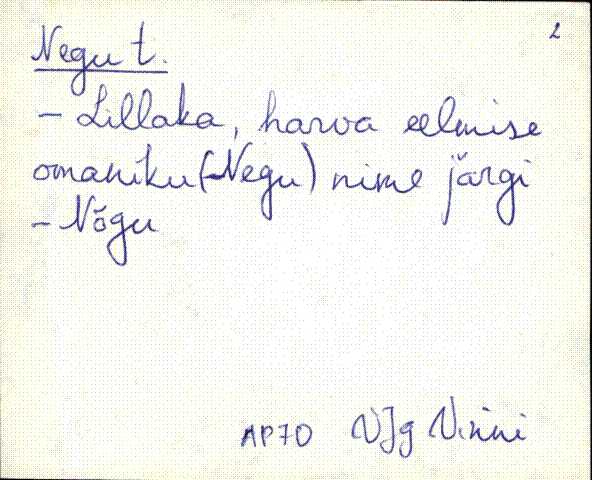 2
Negu t.
- Lillaka, harva eelmise
omaniku (-Negu) nime järgi
- Nõgu
AP70 VJg Vinni